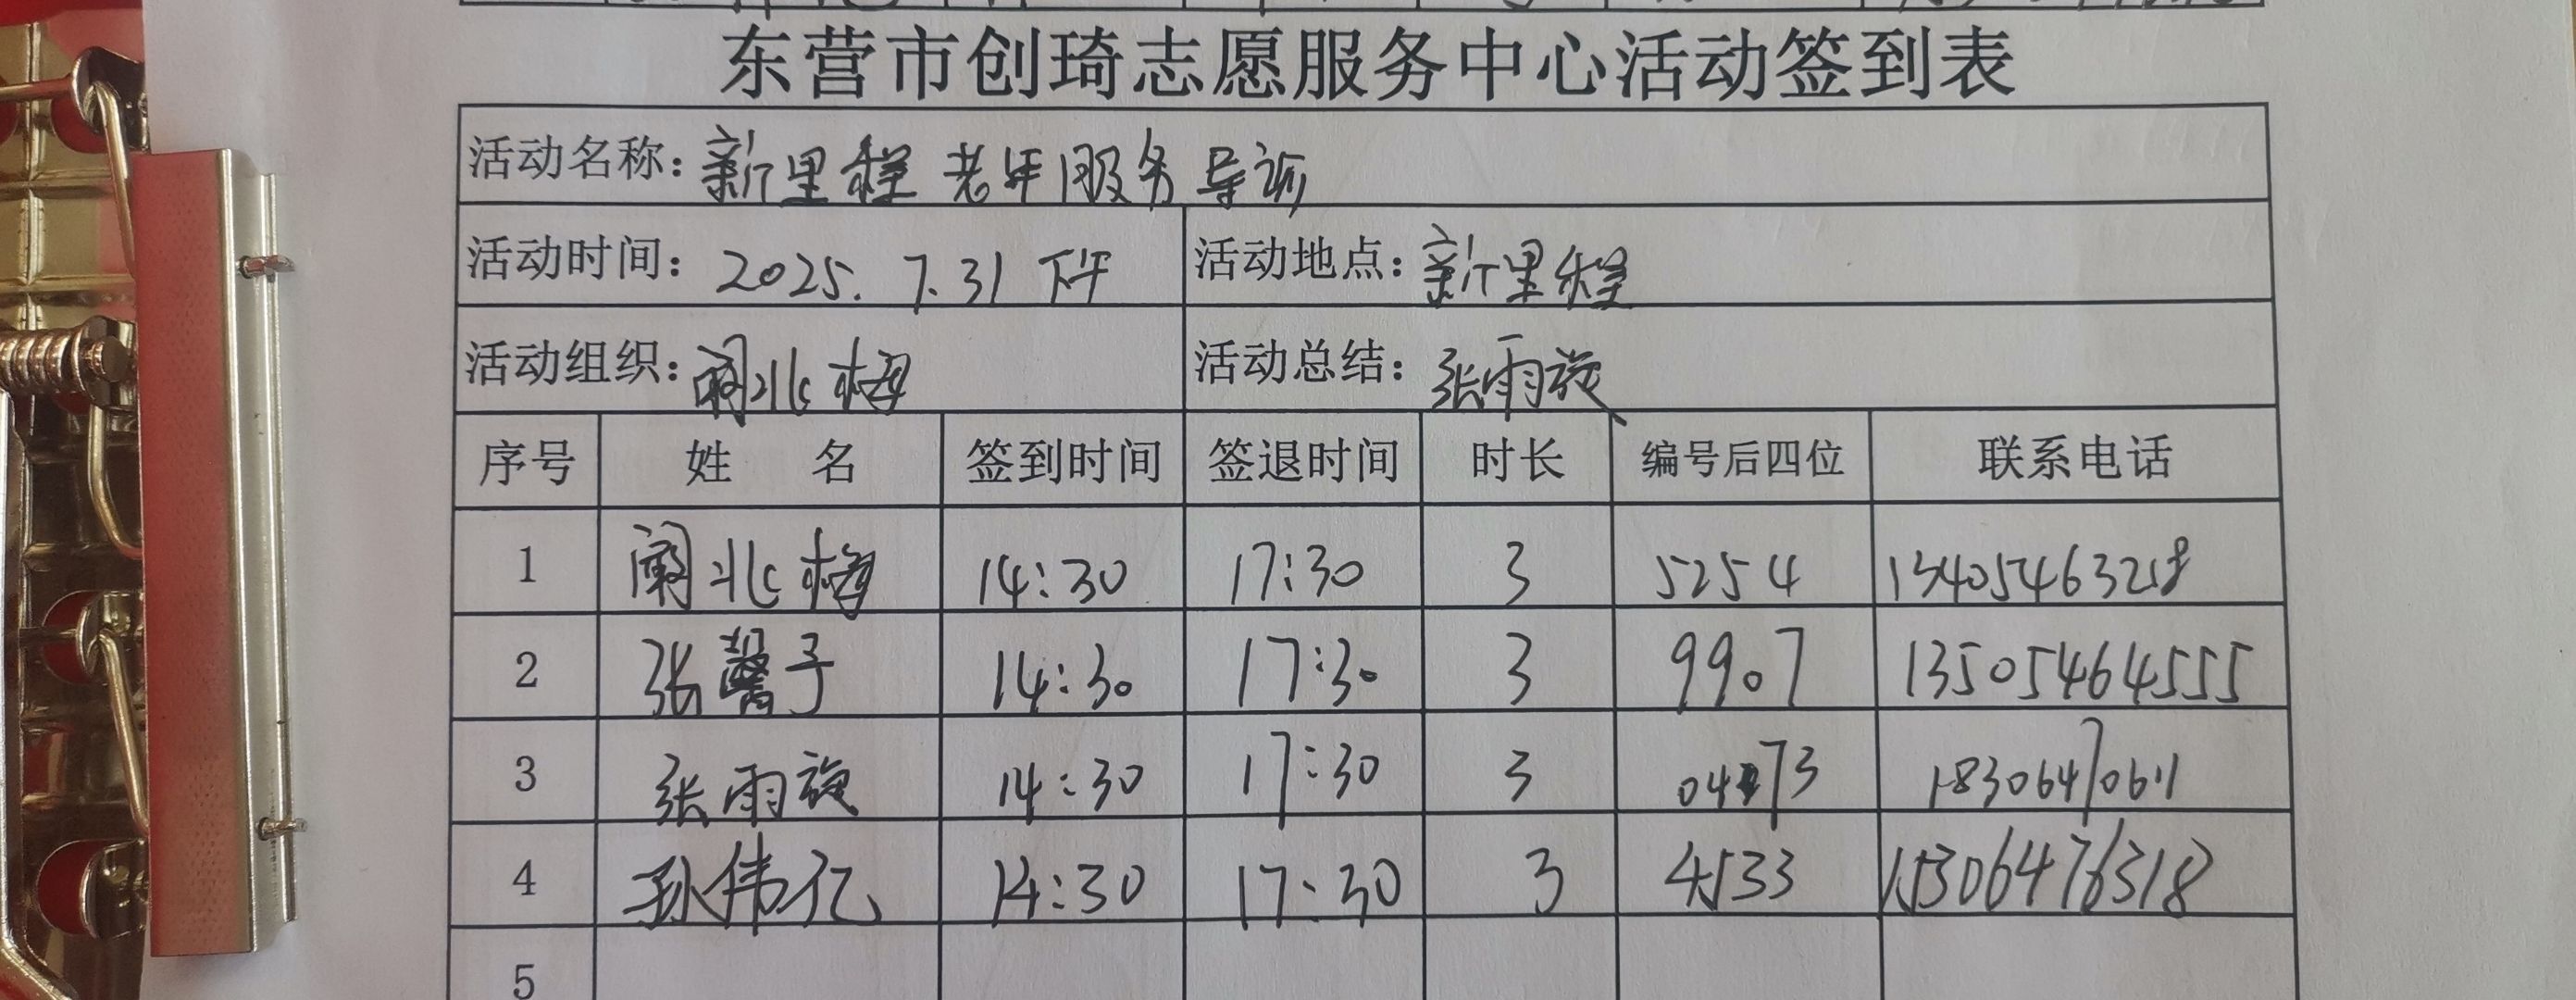 东营市创琦志愿服务中心活动签到表
活动名称：新里程老年服务导诊
活动时间：2025.7.31 下午 活动地点：新里程
活动组织：阚北梅 活动总结：张雨旋
序号 姓 名 签到时间 签退时间 时长 编号后四位 联系电话
1 阚北梅 14:30 17:30 3 5254 13405463218
2 张馨予 14:30 17:30 3 9907 13505464555
3 张雨旋 14:30 17:30 3 0473 18306470611
4 孙伟亿 14:30 17:30 3 4533 15306476318
5